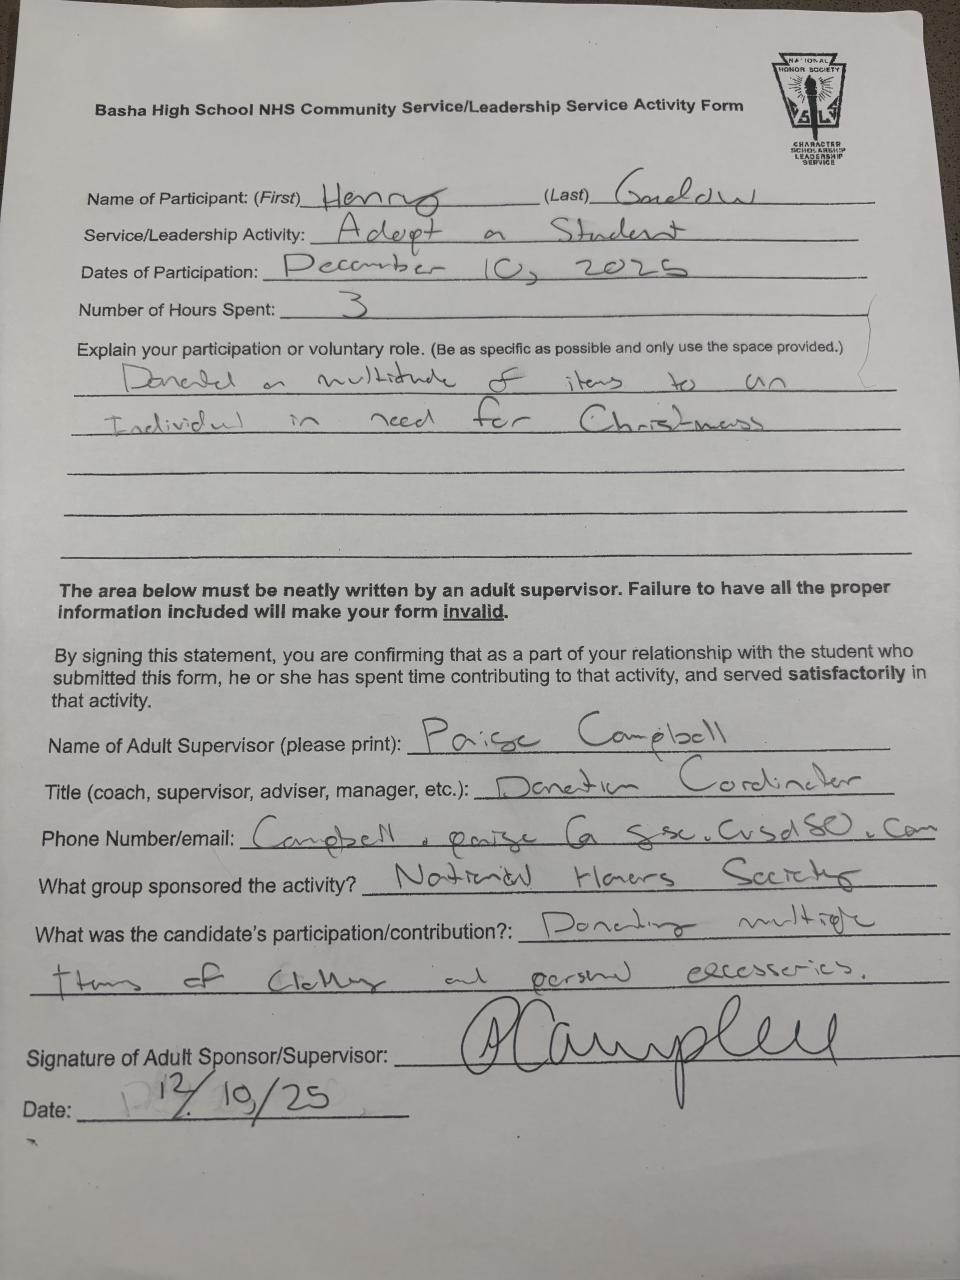 NATIONAL
HONOR SOCIETY
CHARACTER
SCHOLARSHIP
LEADERSHIP
SERVICE
Basha High School NHS Community Service/Leadership Service Activity Form
Name of Participant: (First) Henry (Last)
Service/Leadership Activity: Adopt a Student
Dates of Participation: December 10, 2025
Number of Hours Spent: 3
Explain your participation or voluntary role. (Be as specific as possible and only use the space provided.)
Donated a multitude of items to an
Individual in need for Christmass
The area below must be neatly written by an adult supervisor. Failure to have all the proper
information included will make your form invalid.
By signing this statement, you are confirming that as a part of your relationship with the student who
submitted this form, he or she has spent time contributing to that activity, and served satisfactorily in
that activity.
Name of Adult Supervisor (please print): Paige Campbell
Title (coach, supervisor, adviser, manager, etc.): Donation Cordinator
Phone Number/email: Campbell.paige@
What group sponsored the activity? National Honors Society
What was the candidate's participation/contribution?: Donating multiple
Items of Clothing and personal accessories.
Signature of Adult Sponsor/Supervisor: PCampbell
Date: 12/10/25